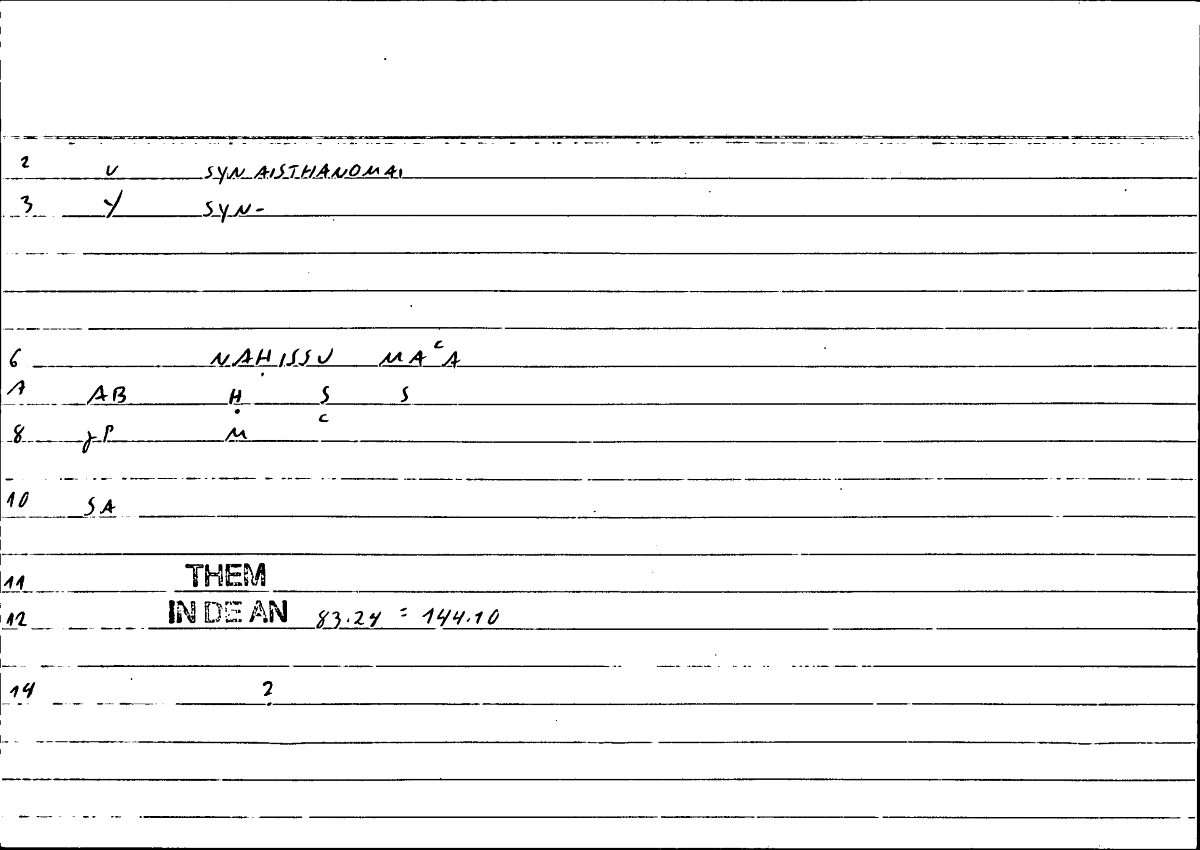 2 V SYN AISTHANOMAI
3 Y SYN-
6 NAḤISSU MAᶜA
A AB Ḥ S S
8 γP M ᶜ
10 SA
11 THEM
12 IN DE AN 83.24 = 144.10
14 ?